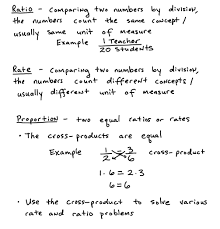 Ratio - comparing two numbers by division,
the numbers count the same concept/
usually same unit of measure
Example 1 Teacher
20 Students
Rate - comparing two numbers by division,
the numbers count different concepts/
usually different unit of measure
Proportion - two equal ratios or rates
• The cross-products are equal
Example 1/2 = 3/6 cross-product
1·6 = 2·3
6=6
• Use the cross-product to solve various
rate and ratio problems